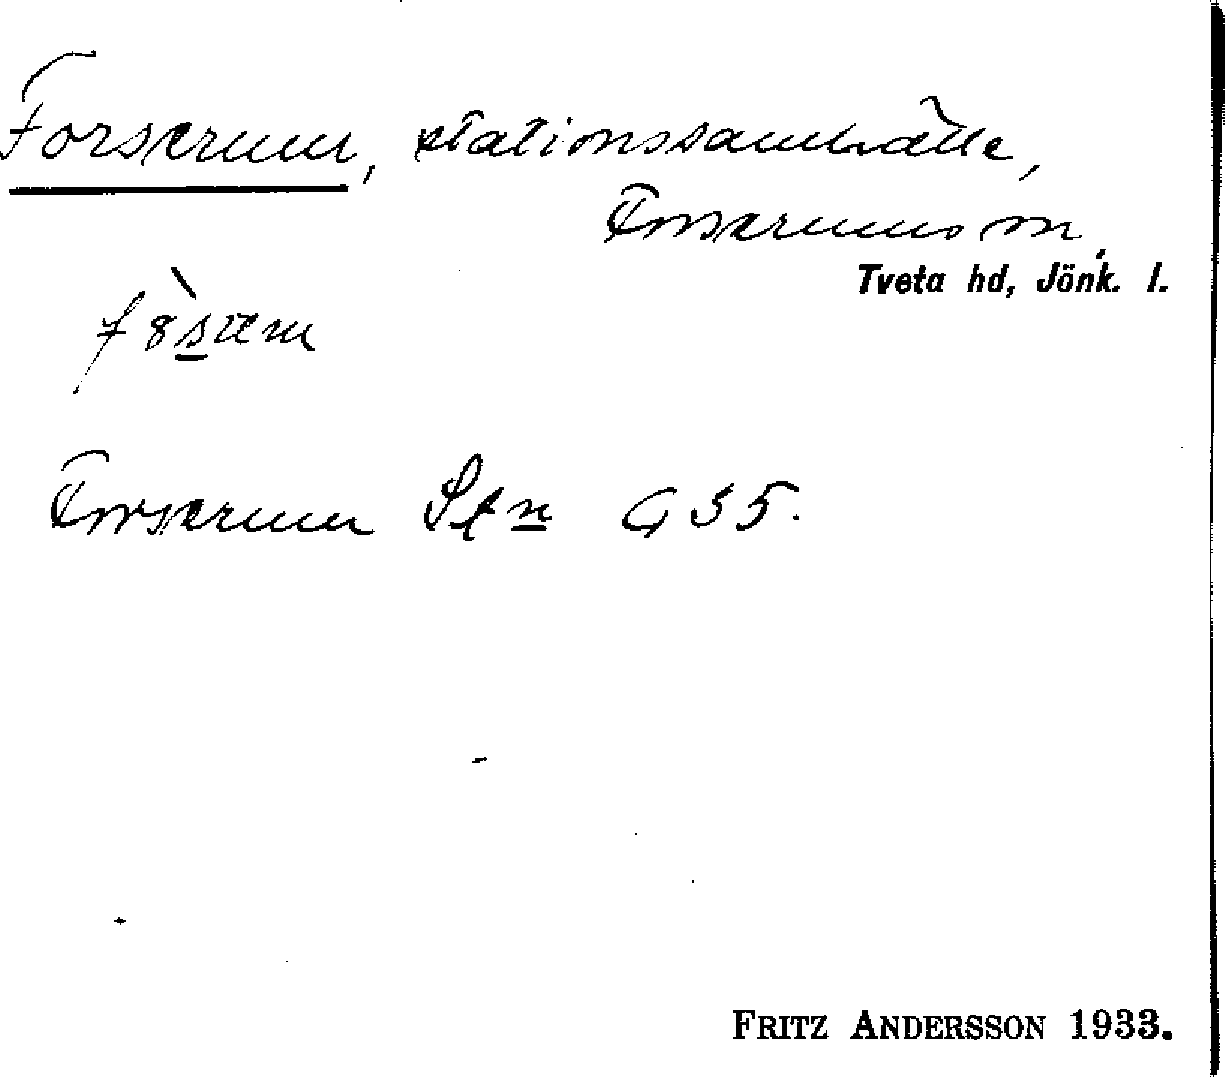 Forserum, stationssamhälle,
Forserums sn,
Tveta hd, Jönk. l.
Forserum Stn G 35.
FRITZ ANDERSSON 1933.